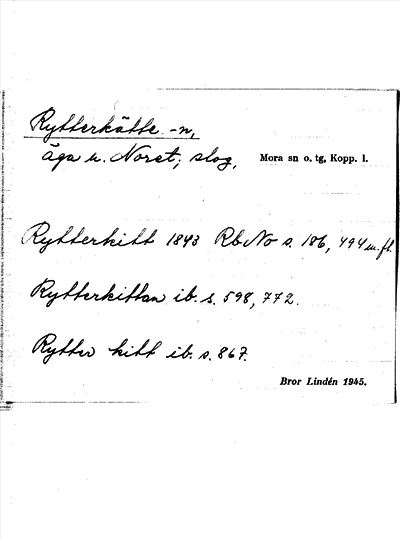 Rytterkätte -n,
äga u. Noret; slog, Mora sn o. tg, Kopp. l.
Rytterkitt 1843 Rb No s. 186, 494 m. fl.
Rytterkittan ib. s. 598, 772.
Rytter kitt ib. s. 867.
Bror Lindén 1945.